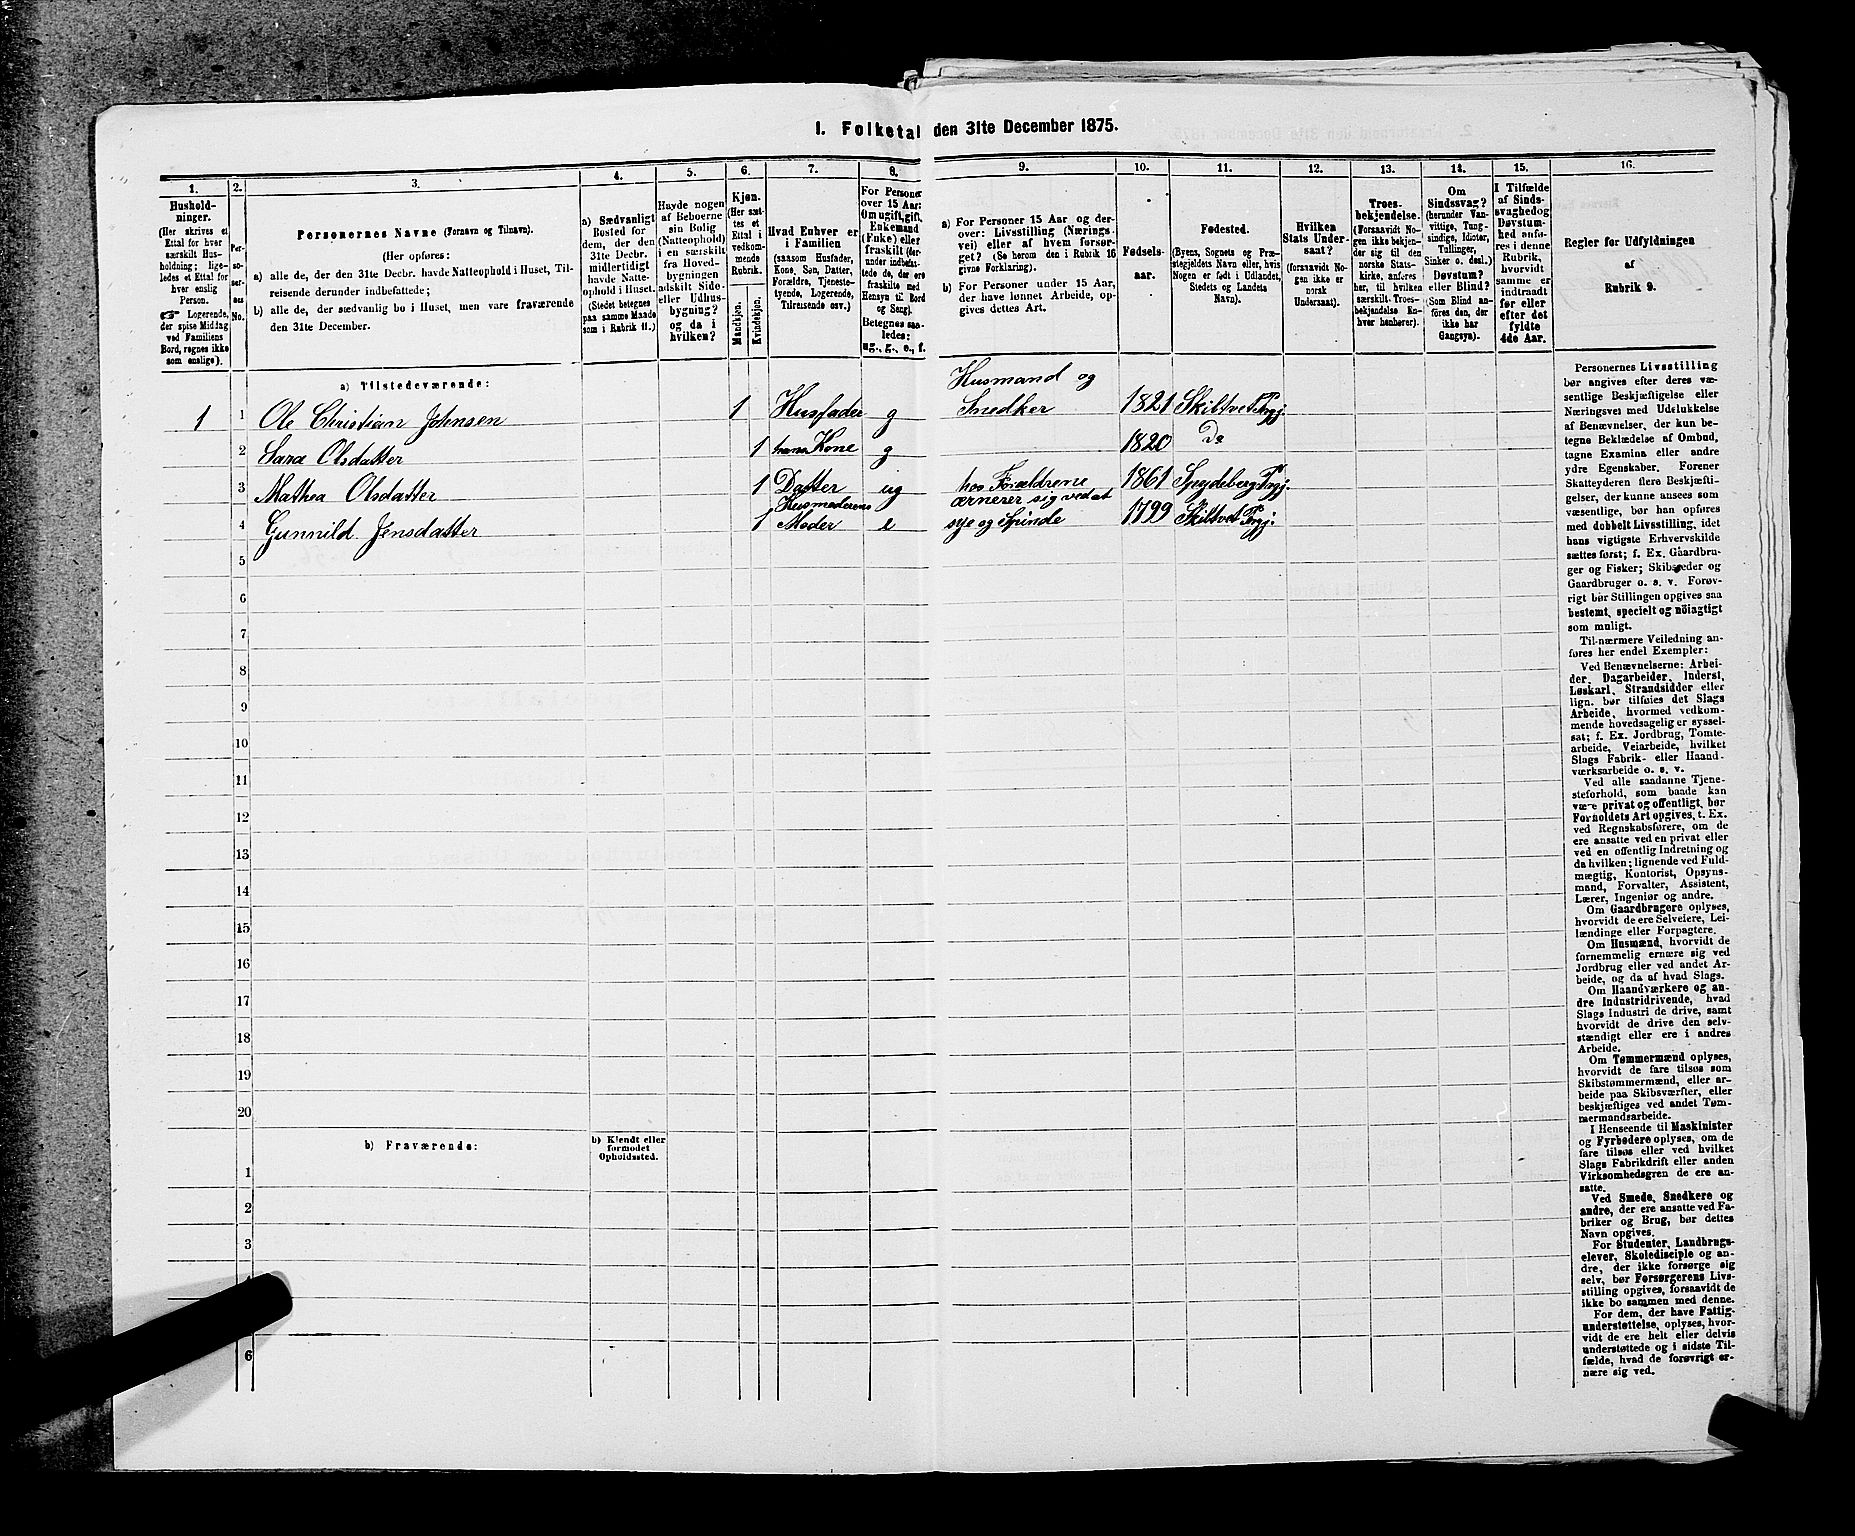 I. Folketal den 31te December 1875.
1.
Hushold-
ninger.
(Her skrives et
Ettal for hver
særskilt Hus-
holdning; lige-
ledes et Ettal for
hver enslig
Person.
☞ Logerende,
der spise Middag
ved Familiens
Bord, regnes ikke
som enslige).
2.
Per-
so-
ner-
nes
No.
3.
Personernes Navne (Fornavn og Tilnavn).
(Her opføres:
a) alle de, der den 31te Decbr. havde Natteophold i Huset, Til-
reisende derunder indbefattede;
b) alle de, der sædvanlig bo i Huset, men vare fraværende
den 31te December.
4.
a) Sædvanligt
Bosted for
dem, der den
31te Decbr.
midlertidigt
havde Natte-
ophold i Huset.
(Stedet betegnes
paa samme Maade
som i Rubrik 11.)
5.
Havde nogen
af Beboerne
sin Bolig
(Natteophold)
i en særskilt
fra Hoved-
bygningen
adskilt Side-
eller Udhus-
bygning?
og da i
hvilken?
6.
Kjøn.
(Her sæt-
tes et
Ettal i
vedkom-
mende
Rubrik.
Mandkjøn.
Kvindekjøn.
7.
Hvad Enhver er
i Familien
(saasom Husfader,
Kone, Søn, Datter,
Forældre, Tjeneste-
tyende, Logerende,
Tilreisende osv.)
8.
For Personer
over 15 Aar:
Om ugift, gift,
Enkemand
(Enke) eller
fraskilt (der-
under indbefat-
tede de, der ere
fraskilte med
Hensyn til Bord
og Seng).
Betegnes saa-
ledes:
ug., g., e., f.
9.
a) For Personer 15 Aar og der-
over: Livsstilling (Nærings-
vei) eller af hvem forsør-
get? (Se herom den i Rubrik 16
givne Forklaring).
b) For Personer under 15 Aar,
der have lønnet Arbeide, op-
gives dettes Art.
10.
Fødsels-
aar.
11.
Fødested.
(Byens, Sognets og Præ-
stegjeldets Navn eller, hvis
Nogen er født i Udlandet,
Stedets og Landets
Navn).
12.
Hvilken
Stats Under-
saat?
(forsaavidt No-
gen ikke er
norsk
Undersaat).
13.
Troes-
bekjendelse.
(Forsaavidt No-
gen ikke bekjen-
der sig til den
norske Stats-
kirke, anføres
her, til hvilken
særskilt. Troes-
bekjendelse En-
hver henhører).
14.
Om
Sindssvag?
(herunder Van-
vittige, Tung-
sindige, Idioter,
Tullinger,
Sinker o. desl.)
Døvstum?
eller Blind?
(Som Blind an-
føres den, der
ikke har
Gangsyn).
15.
I Tilfælde
af Sinds-
svaghed og
Døvstum-
hed anfø-
res i denne
Rubrik,
hvorvidt
samme er
indtraadt
før eller
efter det
fyldte
4de Aar.
16.
Regler for Udfyldningen
af
Rubrik 9.
a) Tilstedeværende:
Husmand og
1 1 Ole Christian Johnsen 1 Husfader g Snedker 1821 Skiltvet Prgj.
2 Sara Olsdatter 1 hans Kone g 1820 Do
3 Mathea Olsdatter 1 Datter ug hos Forældrene 1861 Spydeberg Prgj.
Husmoderens ærnerer sig ved at
4 Gunnild Jensdatter 1 Moder e sye og Spinde 1799 Skiltvet Prgj.
5
6
7
8
9
10
11
12
13
14
15
16
17
18
19
20
b) Fraværende:
b) Kjendt eller
formodet
Opholdssted.
1
2
3
6
Personernes Livsstilling
bør angives efter deres væ-
sentlige Beskjæftigelse eller
Næringsvei med Udelukkelse
af Benævnelser, der kun be-
tegne Beklædelse af Ombud,
tagne Examina eller andre
ydre Egenskaber. Forener
Skatteyderen flere Beskjæfti-
gelser, der kunne ansees som
væsentlige, bør han opføres
med dobbelt Livsstilling, idet
hans vigtigste Erhvervskilde
sættes først; f. Ex. Gaardbru-
ger og Fisker; Skibsreder og
Gaardbruger o. s. v. Forøv-
rigt bør Stillingen opgives saa
bestemt, specielt og nöiagtigt
som muligt.
Til nærmere Veiledning an-
føres her endel Exempler:
Ved Benævnelserne: Arbei-
der, Dagarbeider, Inderst,
Løskarl, Strandsidder eller
lign. bør tilføies det Slags
Arbeide, hvormed vedkom-
mende hovedsagelig er syssel-
sat; f. Ex. Jordbrug, Tomte-
arbeide, Veiarbeide, hvilket
Slags Fabrik- eller Haand-
værksarbeide o. s. v.
Ved alle saadanne Tjene-
steforhold, som baade kan
være privat og offentligt, bør
Forholdets Art opgives, t. Ex.
ved Regnskabsførere, om de
ere ansatte ved en privat eller
ved en offentlig Indretning og
da hvilken; lignende ved Fuld-
mægtig, Kontorist, Opsyns-
mand, Forvalter, Assistent,
Lærer, Ingeniør og andre.
Om Gaardbrugere oplyses,
hvorvidt de ere Selveiere, Lei-
lændinge eller Forpagtere.
Om Husmænd, hvorvidt de
fornemmelig ernære sig ved
Jordbrug eller ved andet Ar-
beide, og da af hvad Slags.
Om Haandværkere og an-
dre Industridrivende, hvad
Slags Industri de drive, samt
hvorvidt de drive den selv-
stændigt eller ere i andres
Arbeide.
Om Tømmermænd oplyses,
hvorvidt de fare tilsøs som
Skibstømmermænd, eller ar-
beide paa Skibsværfter, eller
beskjæftiges ved andet Tøm-
mermandsarbeide.
I Henseende til Maskinister
og Fyrbødere oplyses, om de
fare tilsøs eller ved hvilket
Slags Fabrikdrift eller anden
Virksomhedsgren de ere an-
satte.
Ved Smede, Snedkere og
andre, der ere ansatte ved Fa-
briker og Brug, bør dettes
Navn opgives.
For Studenter, Landbrugs-
elever, Skoledisciple og an-
dre, der ikke forsørge sig
selv, bør Forsørgerens Livs-
stilling opgives, forsaavidt de
ikke bo sammen med denne.
For dem, der have Fattig-
understøttelse, oplyses, hvor-
vidt de ere helt eller delvis
understøttede og i sidste Til-
fælde, hvad de forøvrigt er-
nære sig ved.